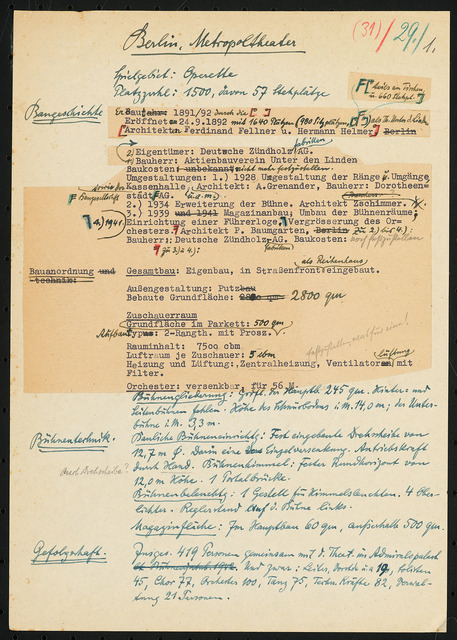 (31)/29/1.
Berlin, Metropoltheater
Spielgebiet: Operette
Platzzahl: 1500, davon 57 Stehplätze
Baugeschichte
Erbaut 1891/92 durch die
Eröffnet 24.9.1892 mit 1640 Plätzen
Architekten Ferdinand Fellner u. Hermann Helmer, Berlin
Eigentümer: Deutsche Zündholzfabriken AG.
Bauherr: Aktienbauverein Unter den Linden
Baukosten: unbekannt nicht mehr festzustellen.
Umgestaltungen: 1.) 1928 Umgestaltung der Ränge u. Umgänge,
Kassenhalle, Architekt A.Grenander, Bauherr: Dorotheen=
stadt AG.
2.) 1934 Erweiterung der Bühne. Architekt Zschimmer.
3.) 1939 und 1941 Magazinanbau; Umbau der Bühnenräume;
4.) 1941.
Einrichtung einer Führerloge, Vergrösserung des Or=
chesters. Architekt P. Baumgarten, Berlin zu 2.) u. 4.):
Bauherr: Deutsche Zündholzfabriken AG. Baukosten: noch festzustellen
zu 3.) 4.):
als Reihenhaus
Bauanordnung und Gesamtbau: Eigenbau, in Straßenfront eingebaut.
-technik:
Außengestaltung: Putzbau
Bebaute Grundfläche: 2800 qm
Zuschauerraum
Grundfläche im Parkett: 500 qm
Aufbau Typus: 2-Rangth. mit Prosz.
Rauminhalt: 7500 cbm
Luftraum je Zuschauer: 5 cbm
Heizung und Lüftung: Zentralheizung, Ventilatoren mit
Lüftung
Filter.
Orchester: versenkbar, für 56 M.
Bühnengliederung: Größe der Hauptb. 245 qm. Hinter= und
Seitenbühnen fehlen. Höhe des Schnürbodens i.M. 14,0 m; der Unter=
bühne i.M. 3,3 m.
Bühnentechnik.
Bauliche Bühneneinrichtg: Fest eingebaute Drehscheibe von
12,7 m Ø. Darin eine Einzelversenkung. Antriebskraft
auch Drehscheibe?
durch Hand. Bühnenhimmel: fester Rundhorizont von
12,0 m Höhe. 1 Portalbrücke.
Bühnenbeleuchtg: 1 Gestell für Himmelsleuchten. 4 Ober=
lichter. Reglerstand auf d. Bühne links.
Magazinfläche: Im Hauptbau 60 qm, außerhalb 500 qm.
Gefolgschaft.
Insges. 419 Personen gemeinsam mit d. Theat. im Admiralspalast
Und zwar: Leiter, Vorstde u.a. 19, Solisten
45, Chor 77, Orchester 100, Tanz 75, Techn. Kräfte 82, Verwal=
tung 21 Personen.